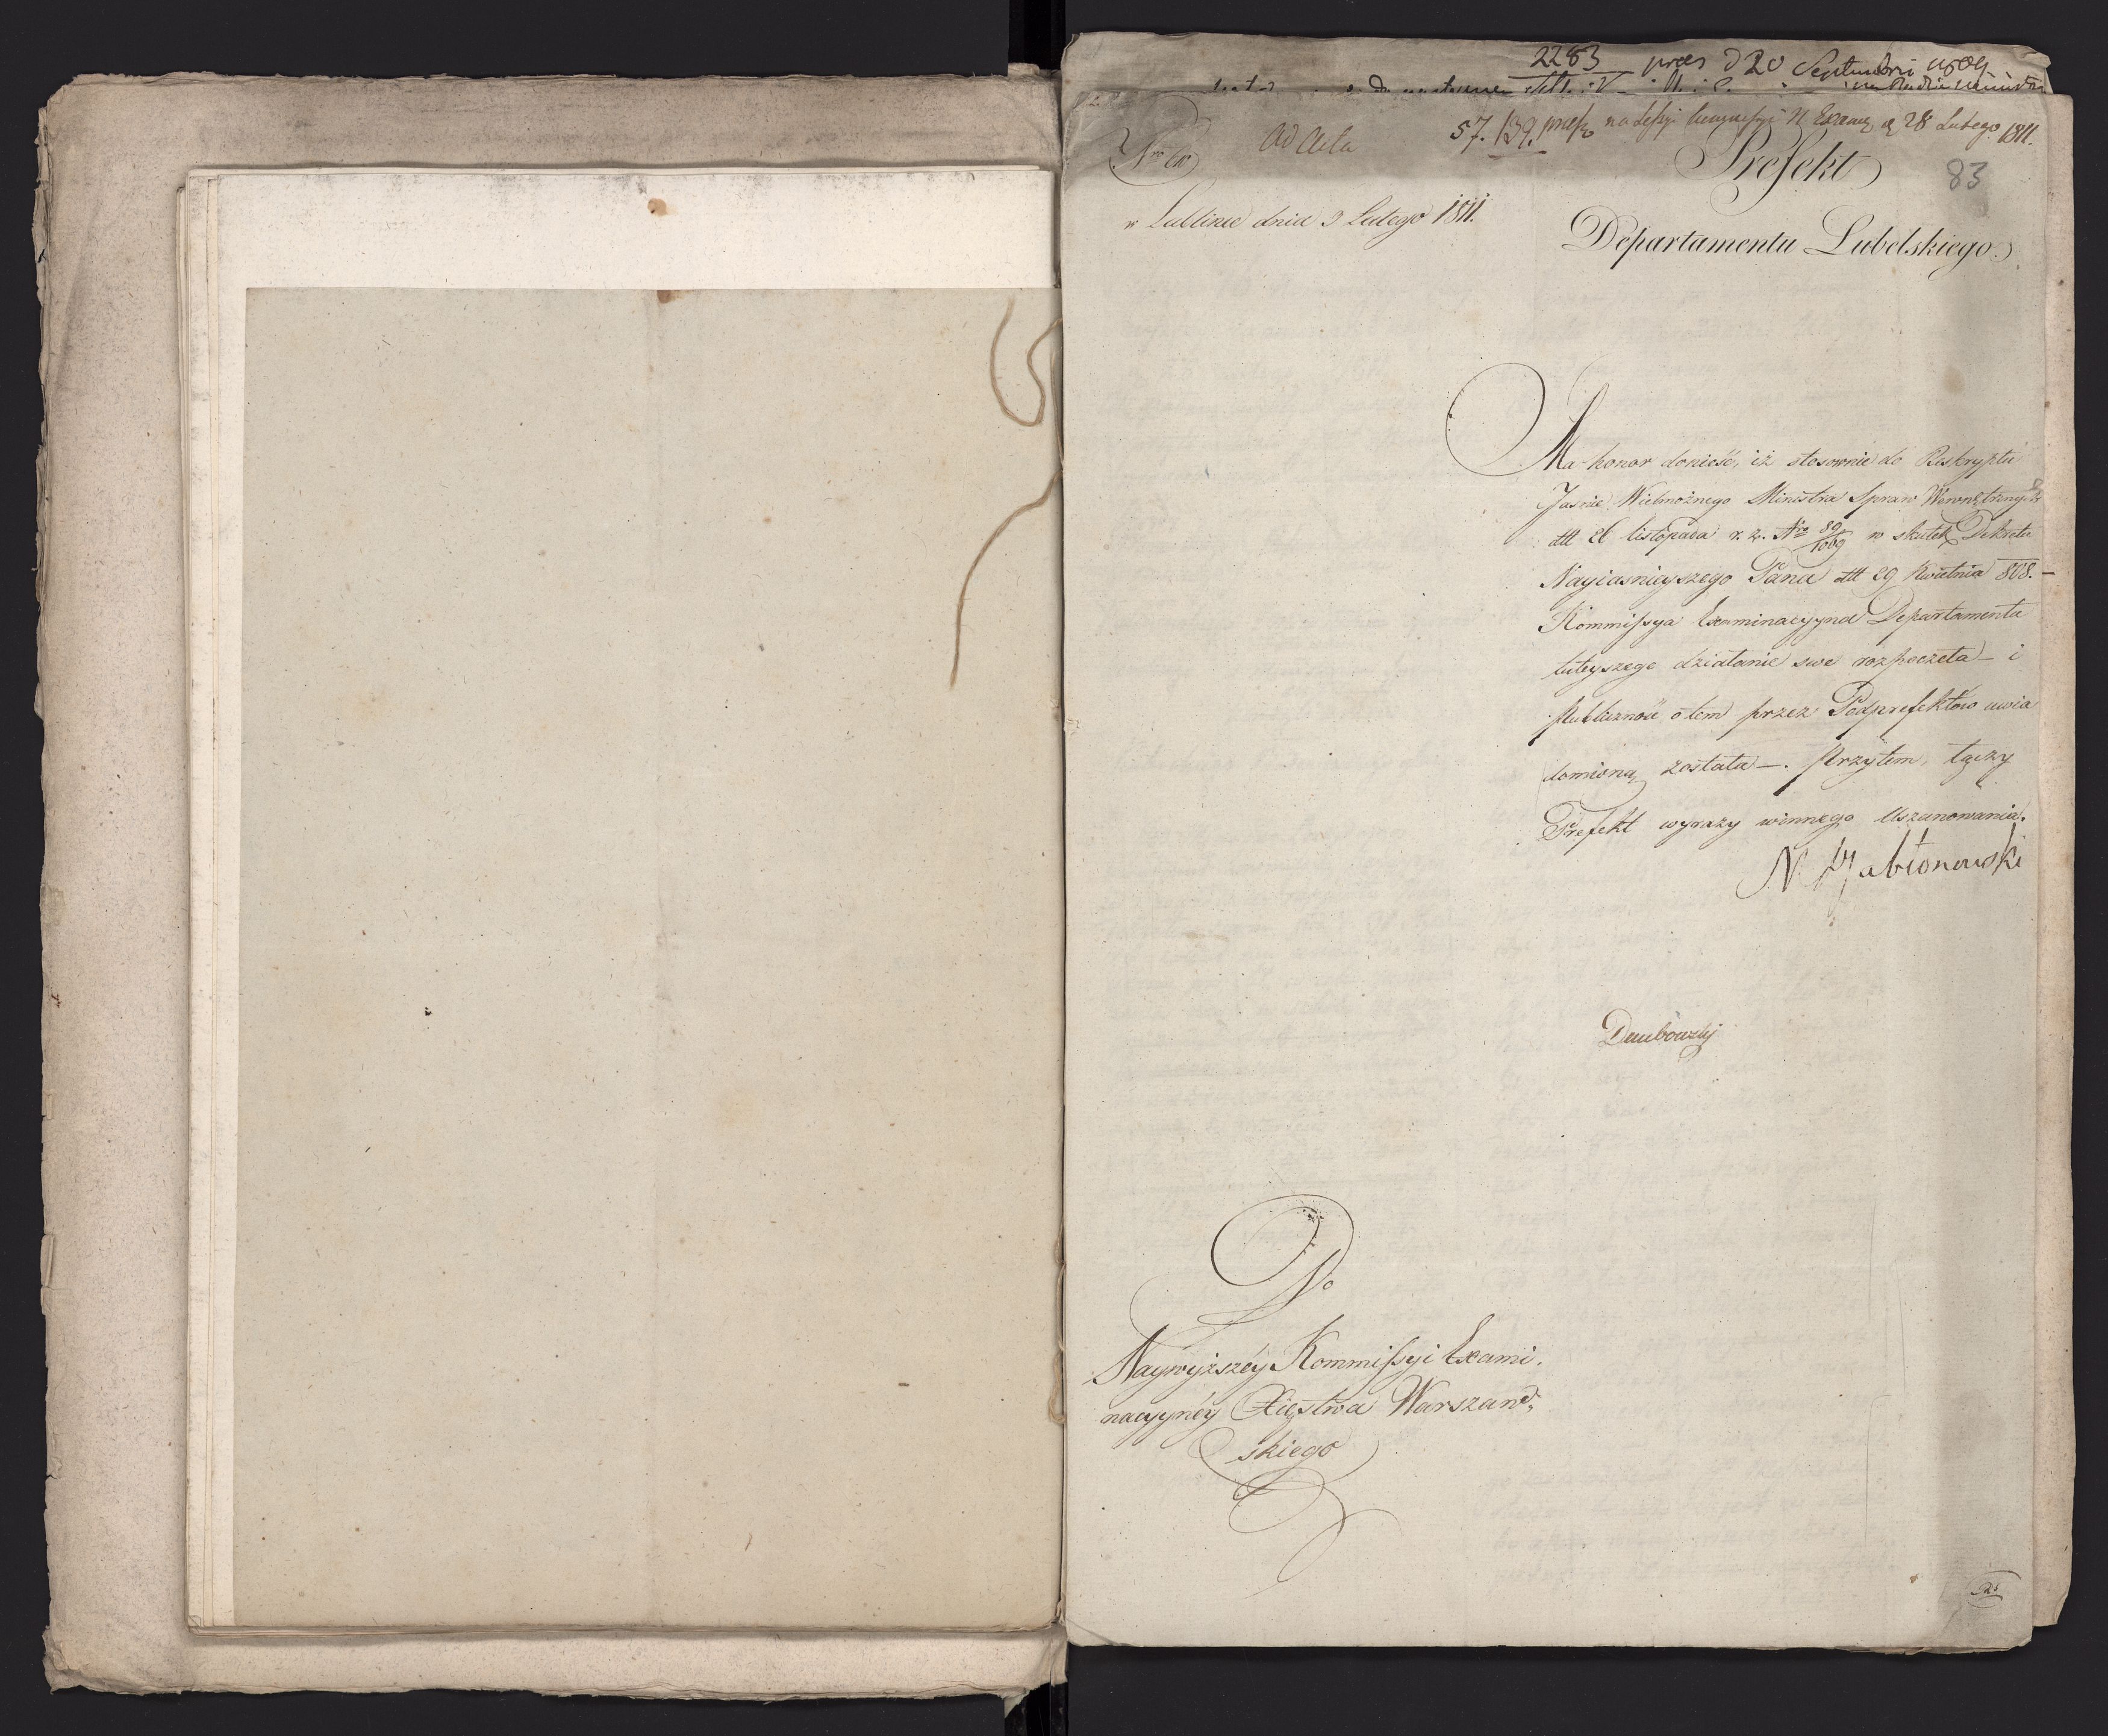 2283 praes d 20 Septembri 1809
Ad Acta 57./139. praes na Sessyi Kommissyi N Exam d 28 Lutego 1811.
Nro
Prefekt
83
w Lublinie dnia 9 Lutego 1811.
Departamentu Lubelskiego.
Ma honor donieść, iż stosownie do Reskryptu
Jaśnie Wielmożnego Ministra Spraw Wewnętrznych
dtt 26 listopada r. z. Nro 89/1009 w skutek Dekretu
Nayiasnieyszego Pana dtt 29 Kwietnia 808. —
Kommissya Examinacyyna Departamentu
tuteyszego działanie swe rozpoczęła — i
publiczność o tem przez Podprefektów uwia
domioną została —. Przytem, łączy
Prefekt wyrazy winnego Uszanowania.
N Jabłonowski
Do
Naywyższéy Kommissyi Exami,
nacyynéy Xięstwa Warszaw,
skiego